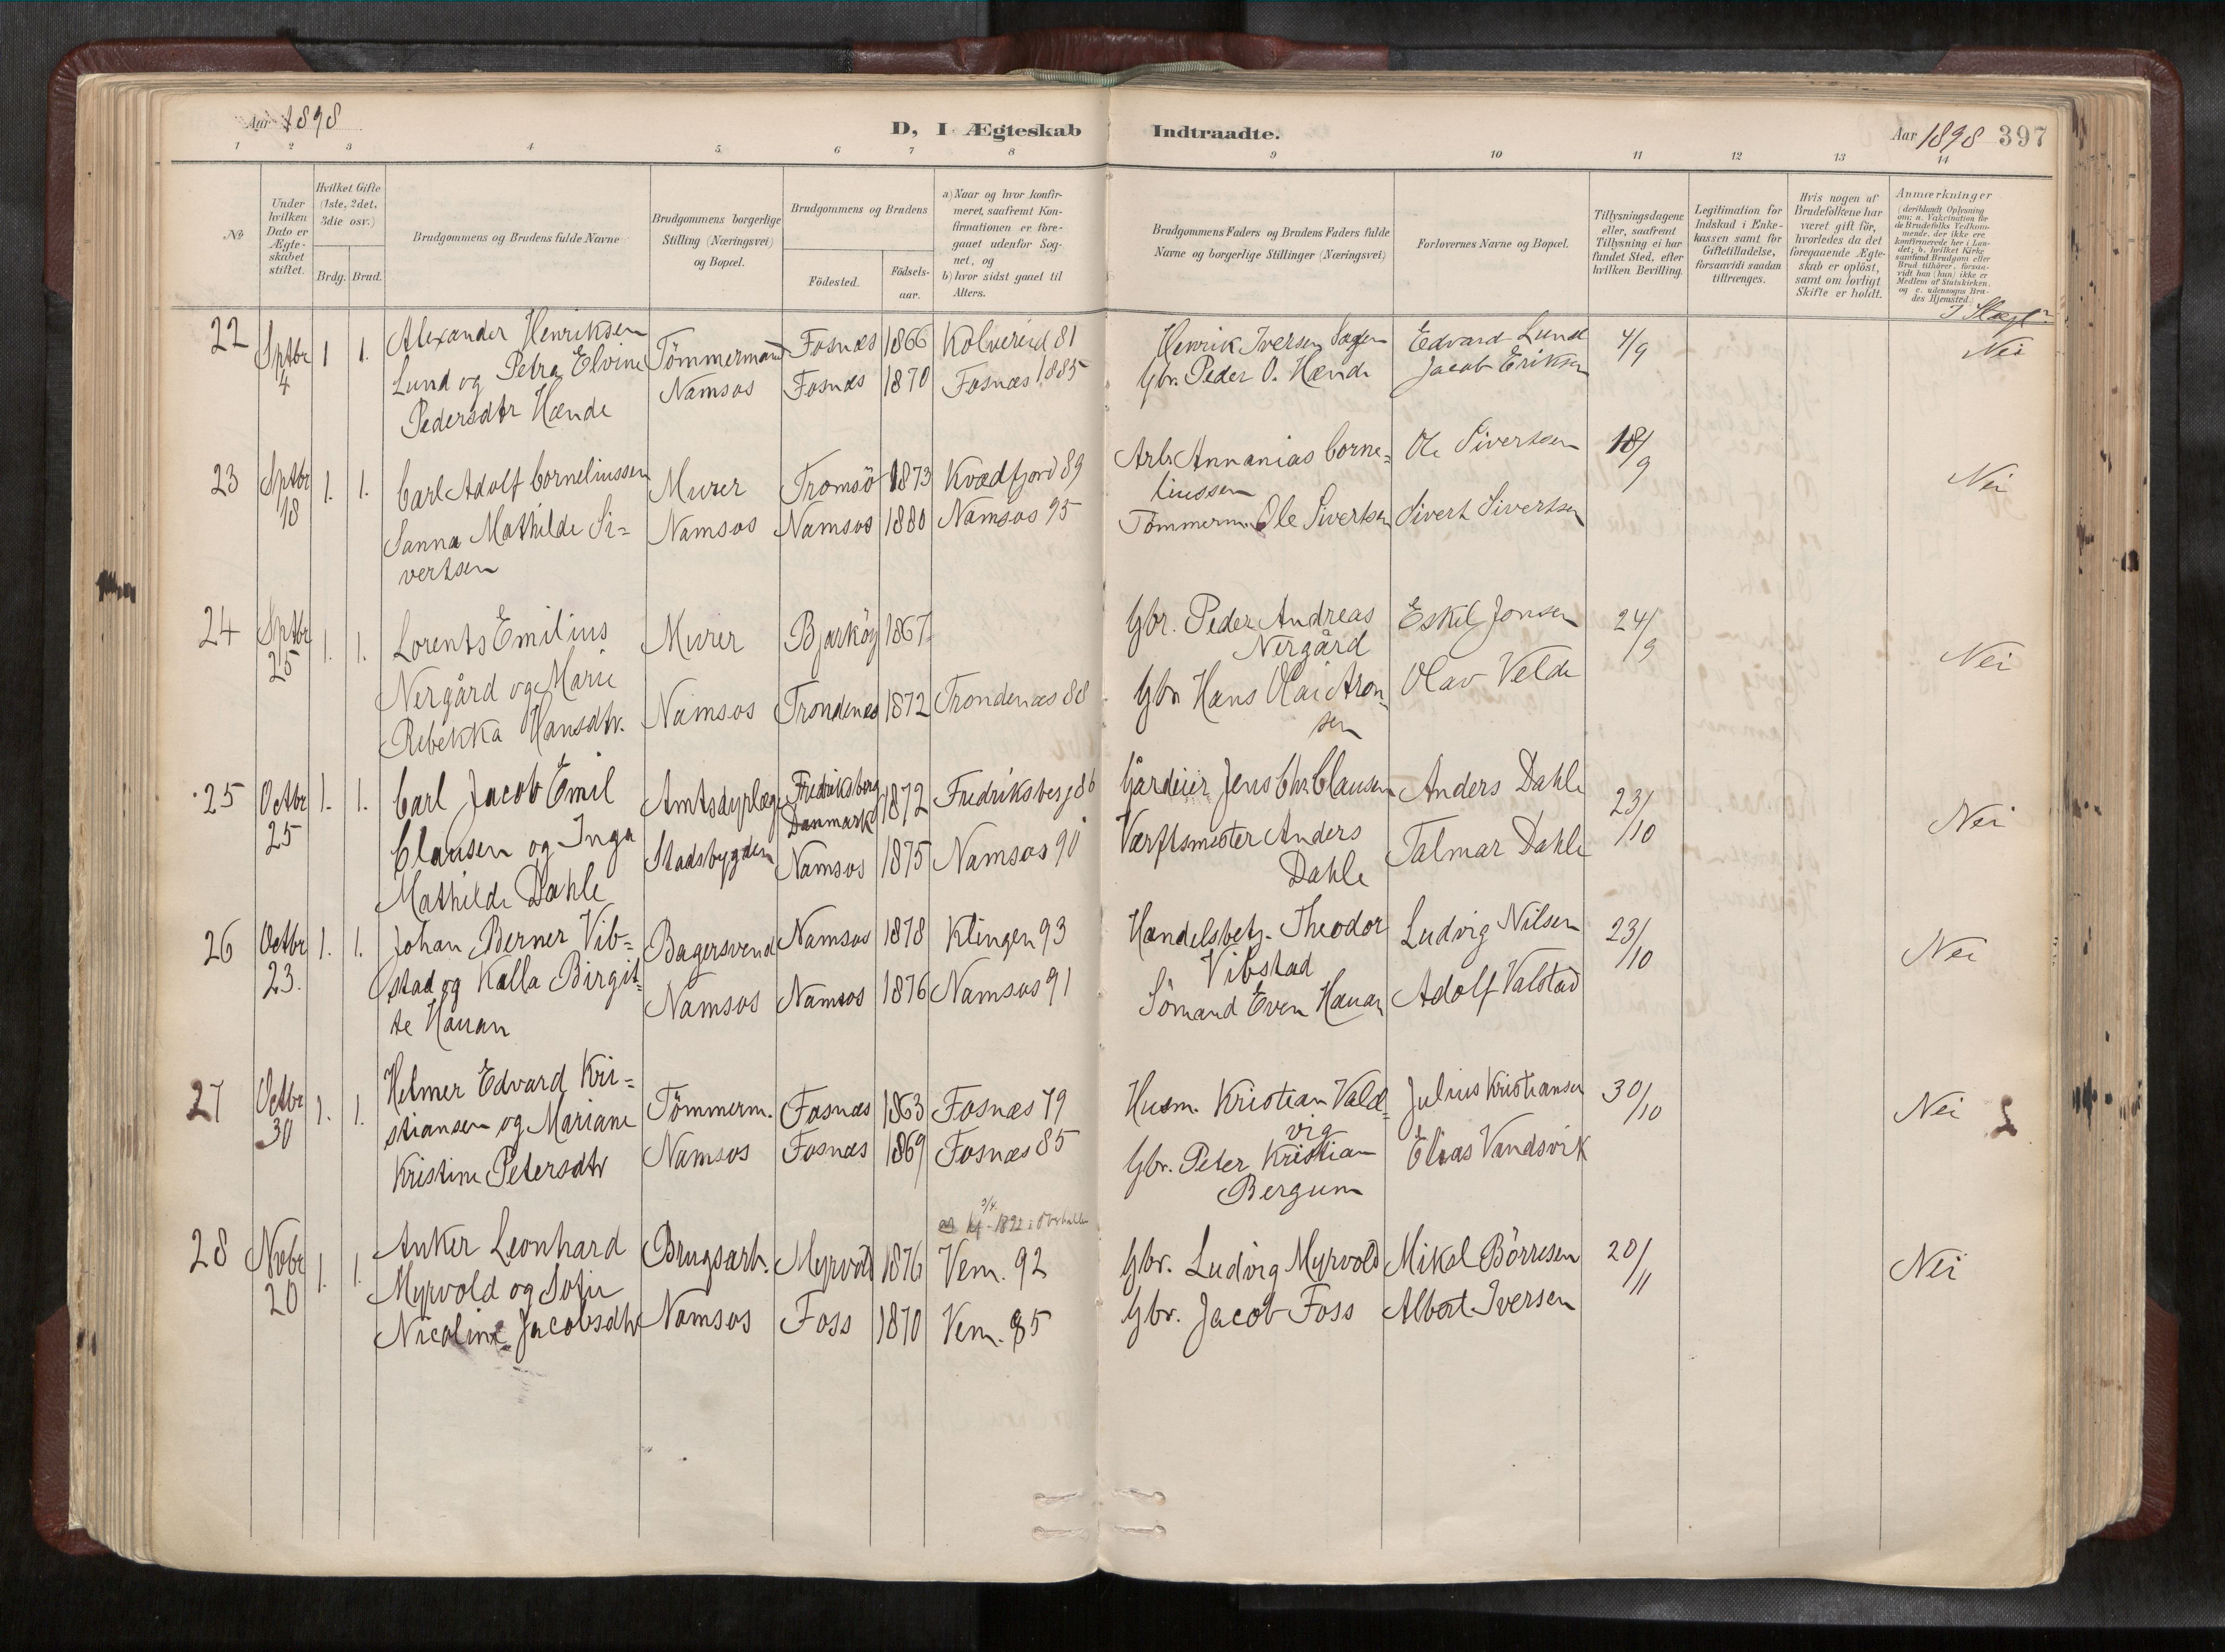 Aar 1898
D, I Ægteskab Indtraadte.
Aar 1898 397
1 2 3 4 5 6 7 8 9 10 11 12 13 14
No
Under hvilken Dato er Ægte-skabet stiftet.
Hvilket Gifte (1ste, 2det, 3die osv.)
Brdg. Brud.
Brudgommens og Brudens fulde Navne
Brudgommens borgerlige Stilling (Næringsvei) og Bopæl.
Brudgommens og Brudens
Födested.
Födsels-aar.
a) Naar og hvor konfir-meret, saafremt Kon-firmationen er fore-gaaet udenfor Sog-net, og
b) hvor sidst gaaet til Alters.
Brudgommens Faders og Brudens Faders fulde Navne og borgerlige Stillinger (Næringsvei)
Forlovernes Navne og Bopæl.
Tillysningsdagene eller, saafremt Tillysning ei har fundet Sted, efter hvilken Bevilling.
Legitimation for Indskud i Enke-kassen samt for Giftetilladelse, forsaavidt saadan tiltrænges.
Hvis nogen af Brudefolkene har været gift för, hvorledes da det foregaaende Ægte-skab er oplöst, samt om lovligt Skifte er holdt.
Anmærkninger
(deriblandt Oplysning om: a. Vakcination for de Brudefolks Vedkom-mende, der ikke ere konfirmerede her i Lan-det; b. hvilket Kirke-samfund Brudgom eller Brud tilhörer, forsaa-vidt han (hun) ikke er Medlem af Statskirken, og c. udensogns Bru-des Hjemsted.)
I Slægt?
22 Sptbr 4 1 1. Alexander Henriksen Tömmermand Fosnæs 1866 Kolvereid 81 Henrik Iversen Edvard Lund 4/9 Nei
Lund og Petra Elvine Namsos Fosnæs 1870 Fosnæs 1885 Gbr. Peder O. Hænde Jacob Eriksen
Pedersdtr Hænde
23 Sptbr 18 1. 1. Carl Adolf Corneliussen Murer Tromsö 1873 Kvædfjord 89 Arb. Annanias Corne= Ole Sivertsen 18/9 Nei
liussen
Sanna Mathilde Si= Namsos Namsos 1880 Namsos 95 Tömmerm. Ole Sivertsen Sivert Sivertsen
vertsen
24 Sptbr 25 1. 1. Lorents Emilius Murer Bjarköy 1867 Gbr. Peder Andreas Eskil Jonsen 24/9 Nei
Nergård og Marie Nergård
Rebekka Hansdtr. Namsos Trondenæs 1872 Trondenæs 88 Gbr. Hans Olai Aron- Olav Velde
sen
25 Octbr 25 1. 1. Carl Jacob Emil Amtsdyrlæge Fredriksberg Danmark 1872 Fredriksberg 86 Jens Chr. Clausen Anders Dahle 23/10 Nei
Clausen og Inga Stadsbygden Namsos 1875 Namsos 90 Værftsmester Anders Talmar Dahle
Mathilde Dahle Dahle
26 Octbr 23. 1. 1. Johan Berner Vib= Bagersvend Namsos 1878 Klingen 93 Handelsbetj. Theodor Ludvig Nilsen 23/10 Nei
stad og Kalla Birgit= Vibstad
te Hauan Namsos Namsos 1876 Namsos 91 Sömand Even Hauan Adolf Valstad
27 Octbr 30 1. 1. Helmer Edvard Kri= Tömmerm. Fosnæs 1863 Fosnæs 79 Husm. Kristian Vald= Julius Kristiansen 30/10 Nei
stiansen og Mariane vig
Kristine Petersdtr Namsos Fosnæs 1869 Fosnæs 85 Gbr. Peter Kristian Elias Vandsvik
Bergum
3/4 - 1892 i Overhallen
28 Novbr 20 1. 1. Anker Leonhard Brugsarb. Myrvold 1876 Vem. 92 Gbr. Ludvig Myrvold Mikal Börresen 20/11 Nei
Myrvold og Sofie
Nicoline Jacobsdtr Namsos Foss 1870 Vem. 85 Gbr. Jacob Foss Albert Iversen